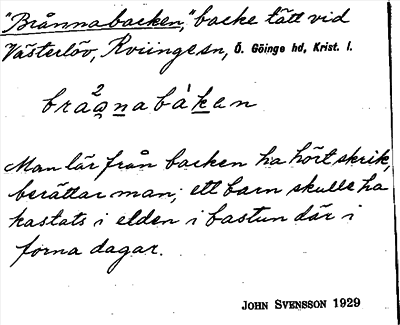 "Brånnabacken," backe tätt vid
Västerlöv, Kviinge sn, Ö. Göinge hd, Krist. l.
Man lär från backen ha hört skrik,
berättar man; ett barn skulle ha
kastats i elden i bastun där i
forna dagar.
JOHN SVENSSON 1929